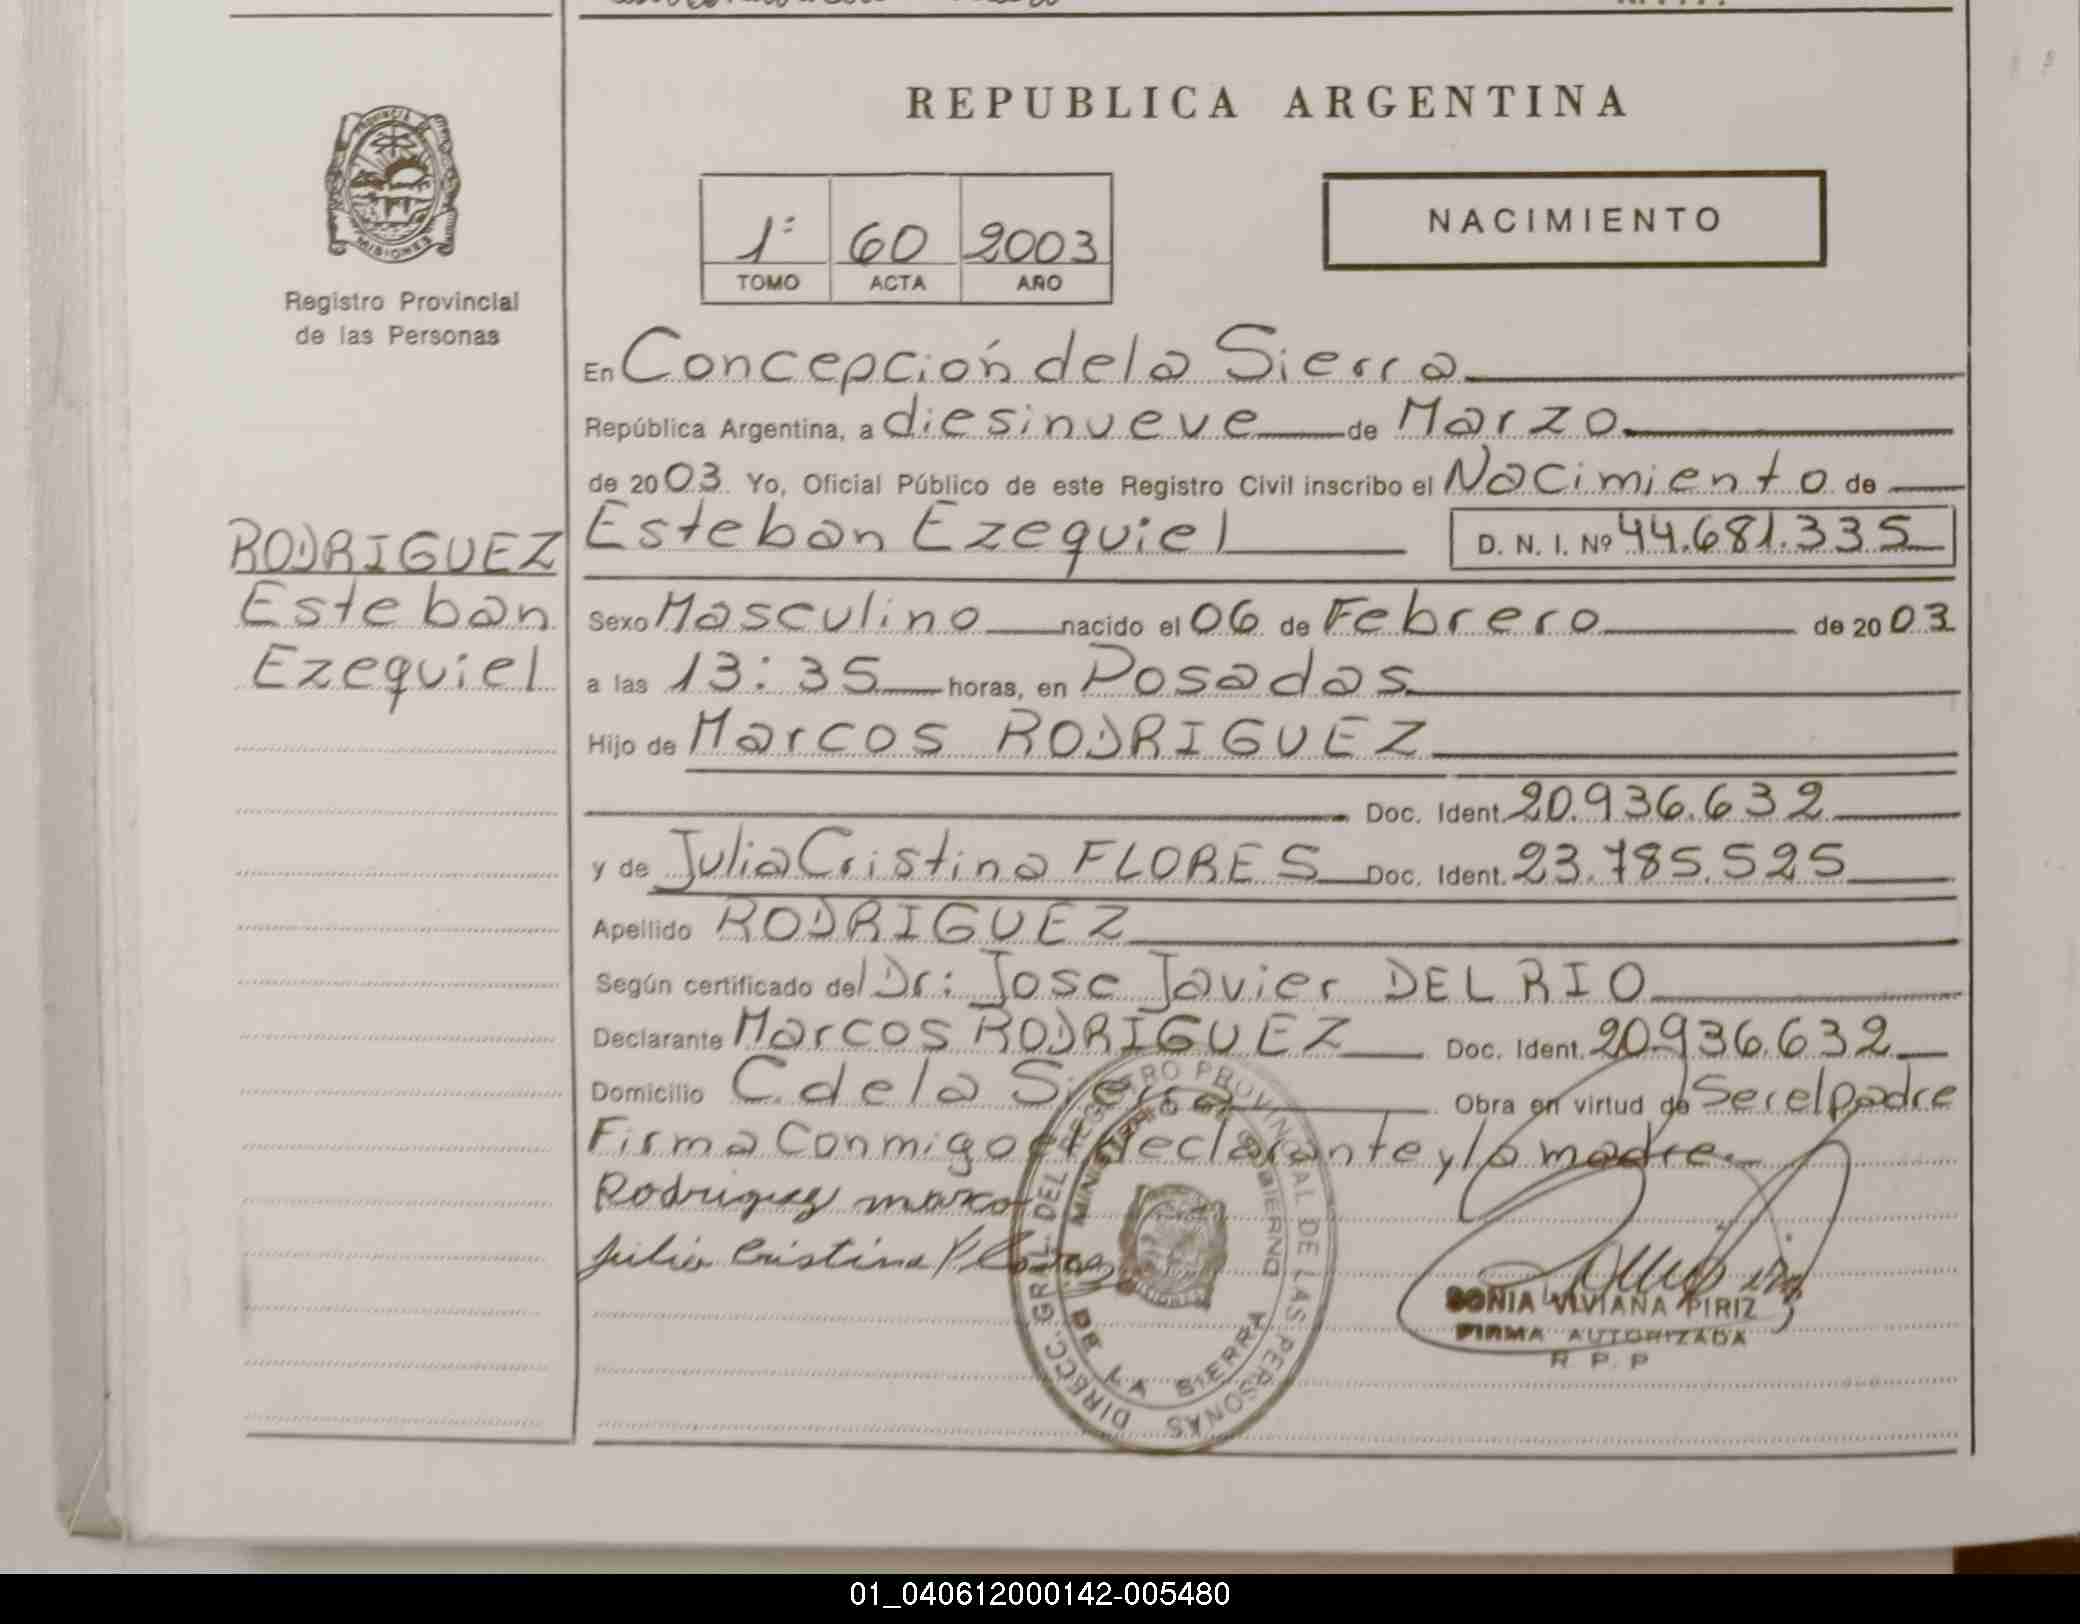 REPUBLICA ARGENTINA
PROVINCIA DE
MISIONES
Registro Provincial
de las Personas
1º 60 2003
TOMO ACTA AÑO
NACIMIENTO
En Concepción de la Sierra
República Argentina, a diesinueve de Marzo
de 2003. Yo, Oficial Público de este Registro Civil inscribo el Nacimiento de
RODRIGUEZ
Esteban
Ezequiel
Esteban Ezequiel D. N. I. Nº 44.681.335
Sexo Masculino nacido el 06 de Febrero de 2003
a las 13:35 horas, en Posadas
Hijo de Marcos RODRIGUEZ
Doc. Ident. 20.936.632
y de Julia Cristina FLORES Doc. Ident. 23.785.525
Apellido RODRIGUEZ
Según certificado del Dr: Jose Javier DEL RIO
Declarante Marcos RODRIGUEZ Doc. Ident. 20.936.632
Domicilio C. de la Sierra Obra en virtud de Ser el padre
Firma Conmigo el declarante y la madre.
Rodriguez marco
Julia Cristina Flores
DIRECC. GRAL. DEL REGISTRO PROVINCIAL DE LAS PERSONAS
MINISTERIO DE GOBIERNO
DE LA SIERRA
SONIA VIVIANA PIRIZ
FIRMA AUTORIZADA
R. P. P
01_040612000142-005480